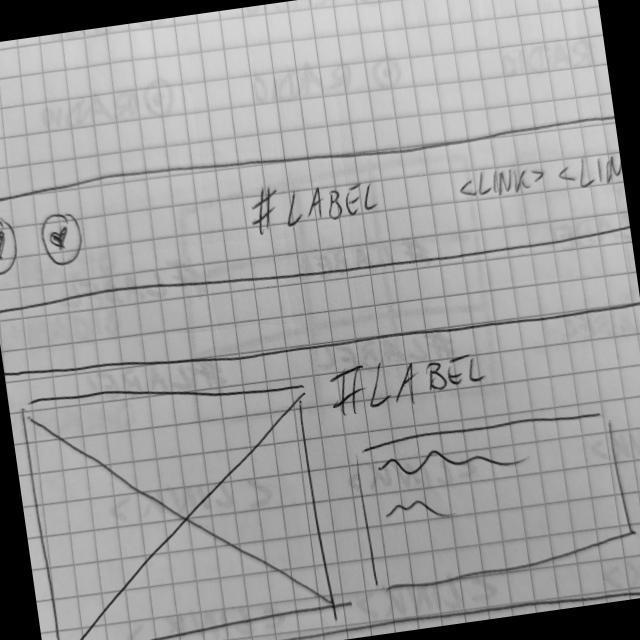 # LABEL <LINK> <LIN
# LABEL